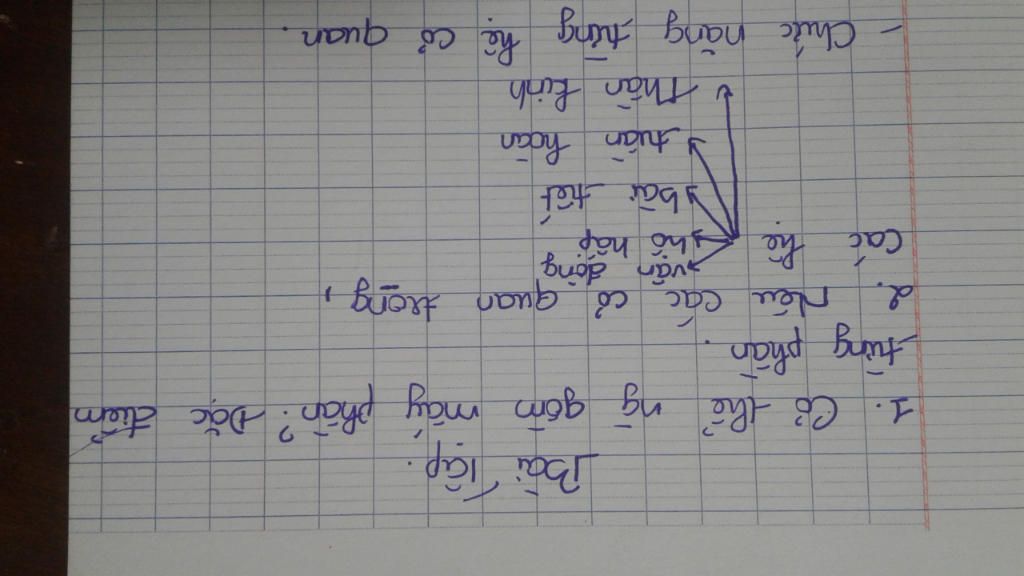 Bài Tập.
1. Cơ thể ng̃ gồm mấy phần? Đặc điểm
từng phần.
2. Nêu các cơ quan trong,
vận động
Các hệ hô hấp
bài tiết
tuần hoàn
Thần kinh
- Chức năng từng hệ cơ quan.